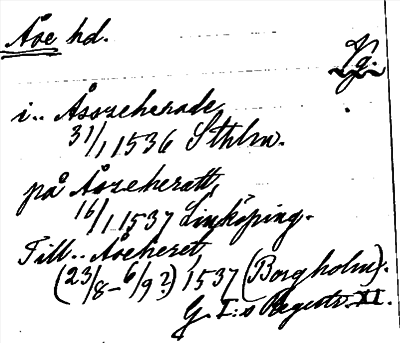 Åse hd.
Vg.
i.. Åsszeherade,
31/1 1536 Sthlm.
på Åszeheratt,
16/1 1537 Linköping.
Till.. Åseheret,
(23/8–6/9?) 1537 (Borgholm).
G. I:s Regestr. XI.